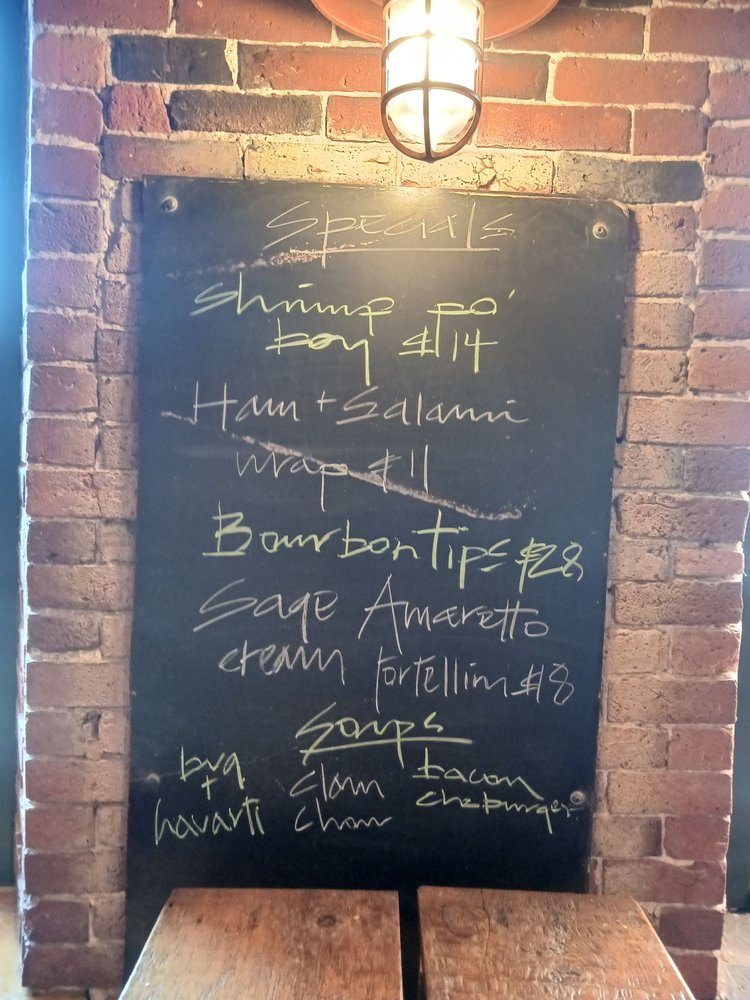 Specials
Shrimp po'
boy $14
Ham + Salami
wrap $11
Bourbon Tips $28
Sage Amaretto
cream Tortellini $18
Soups
brq
+
havarti
clam
chow
bacon
chzburger